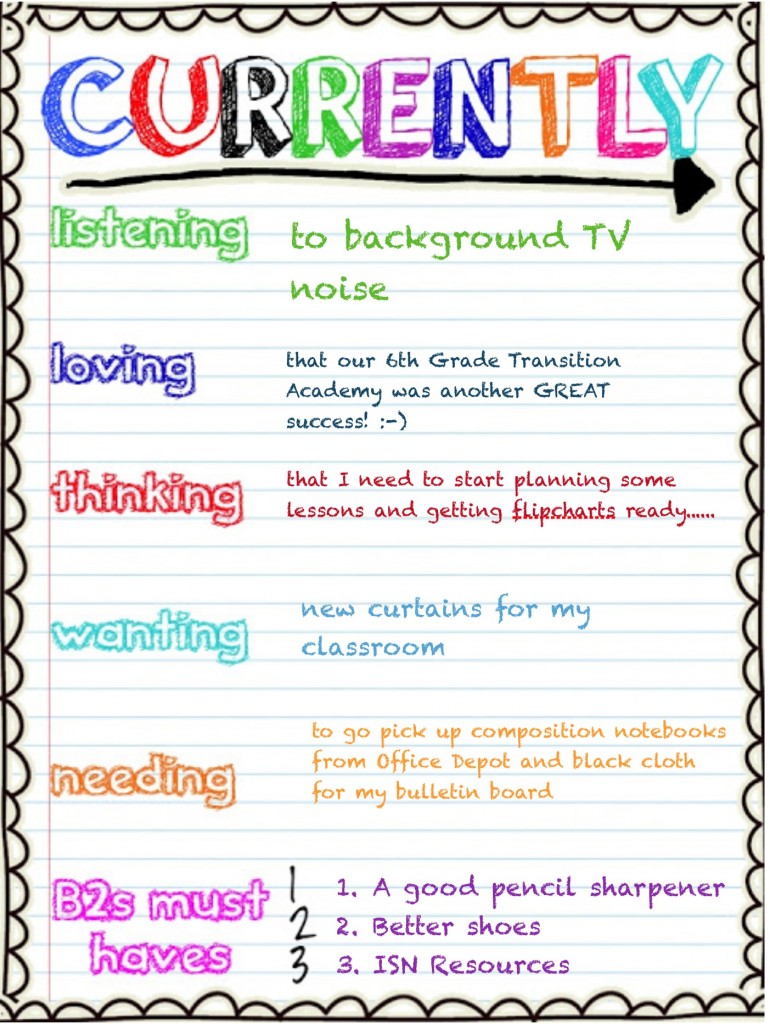 CURRENTLY
listening
to background TV
noise
loving
that our 6th Grade Transition
Academy was another GREAT
success! :-)
thinking
that I need to start planning some
lessons and getting flipcharts ready......
wanting
new curtains for my
classroom
needing
to go pick up composition notebooks
from Office Depot and black cloth
for my bulletin board
B2s must
haves
1 1. A good pencil sharpener
2 2. Better shoes
3 3. ISN Resources